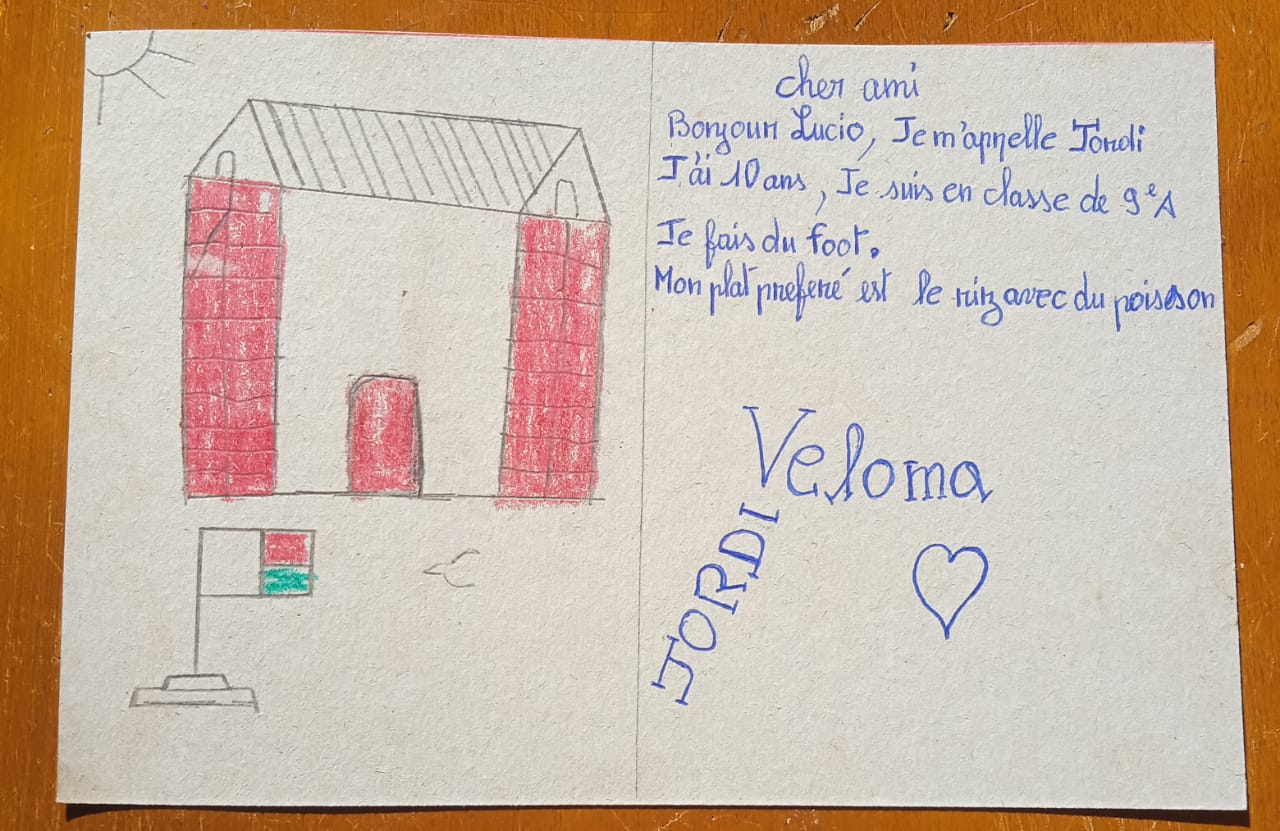 cher ami
Bonjour Lucio, Je m'appelle Jordi
J'ai 10 ans, Je suis en classe de 9eA
Je fais du foot.
Mon plat preferé est le riz avec du poisson
Veloma
JORDI